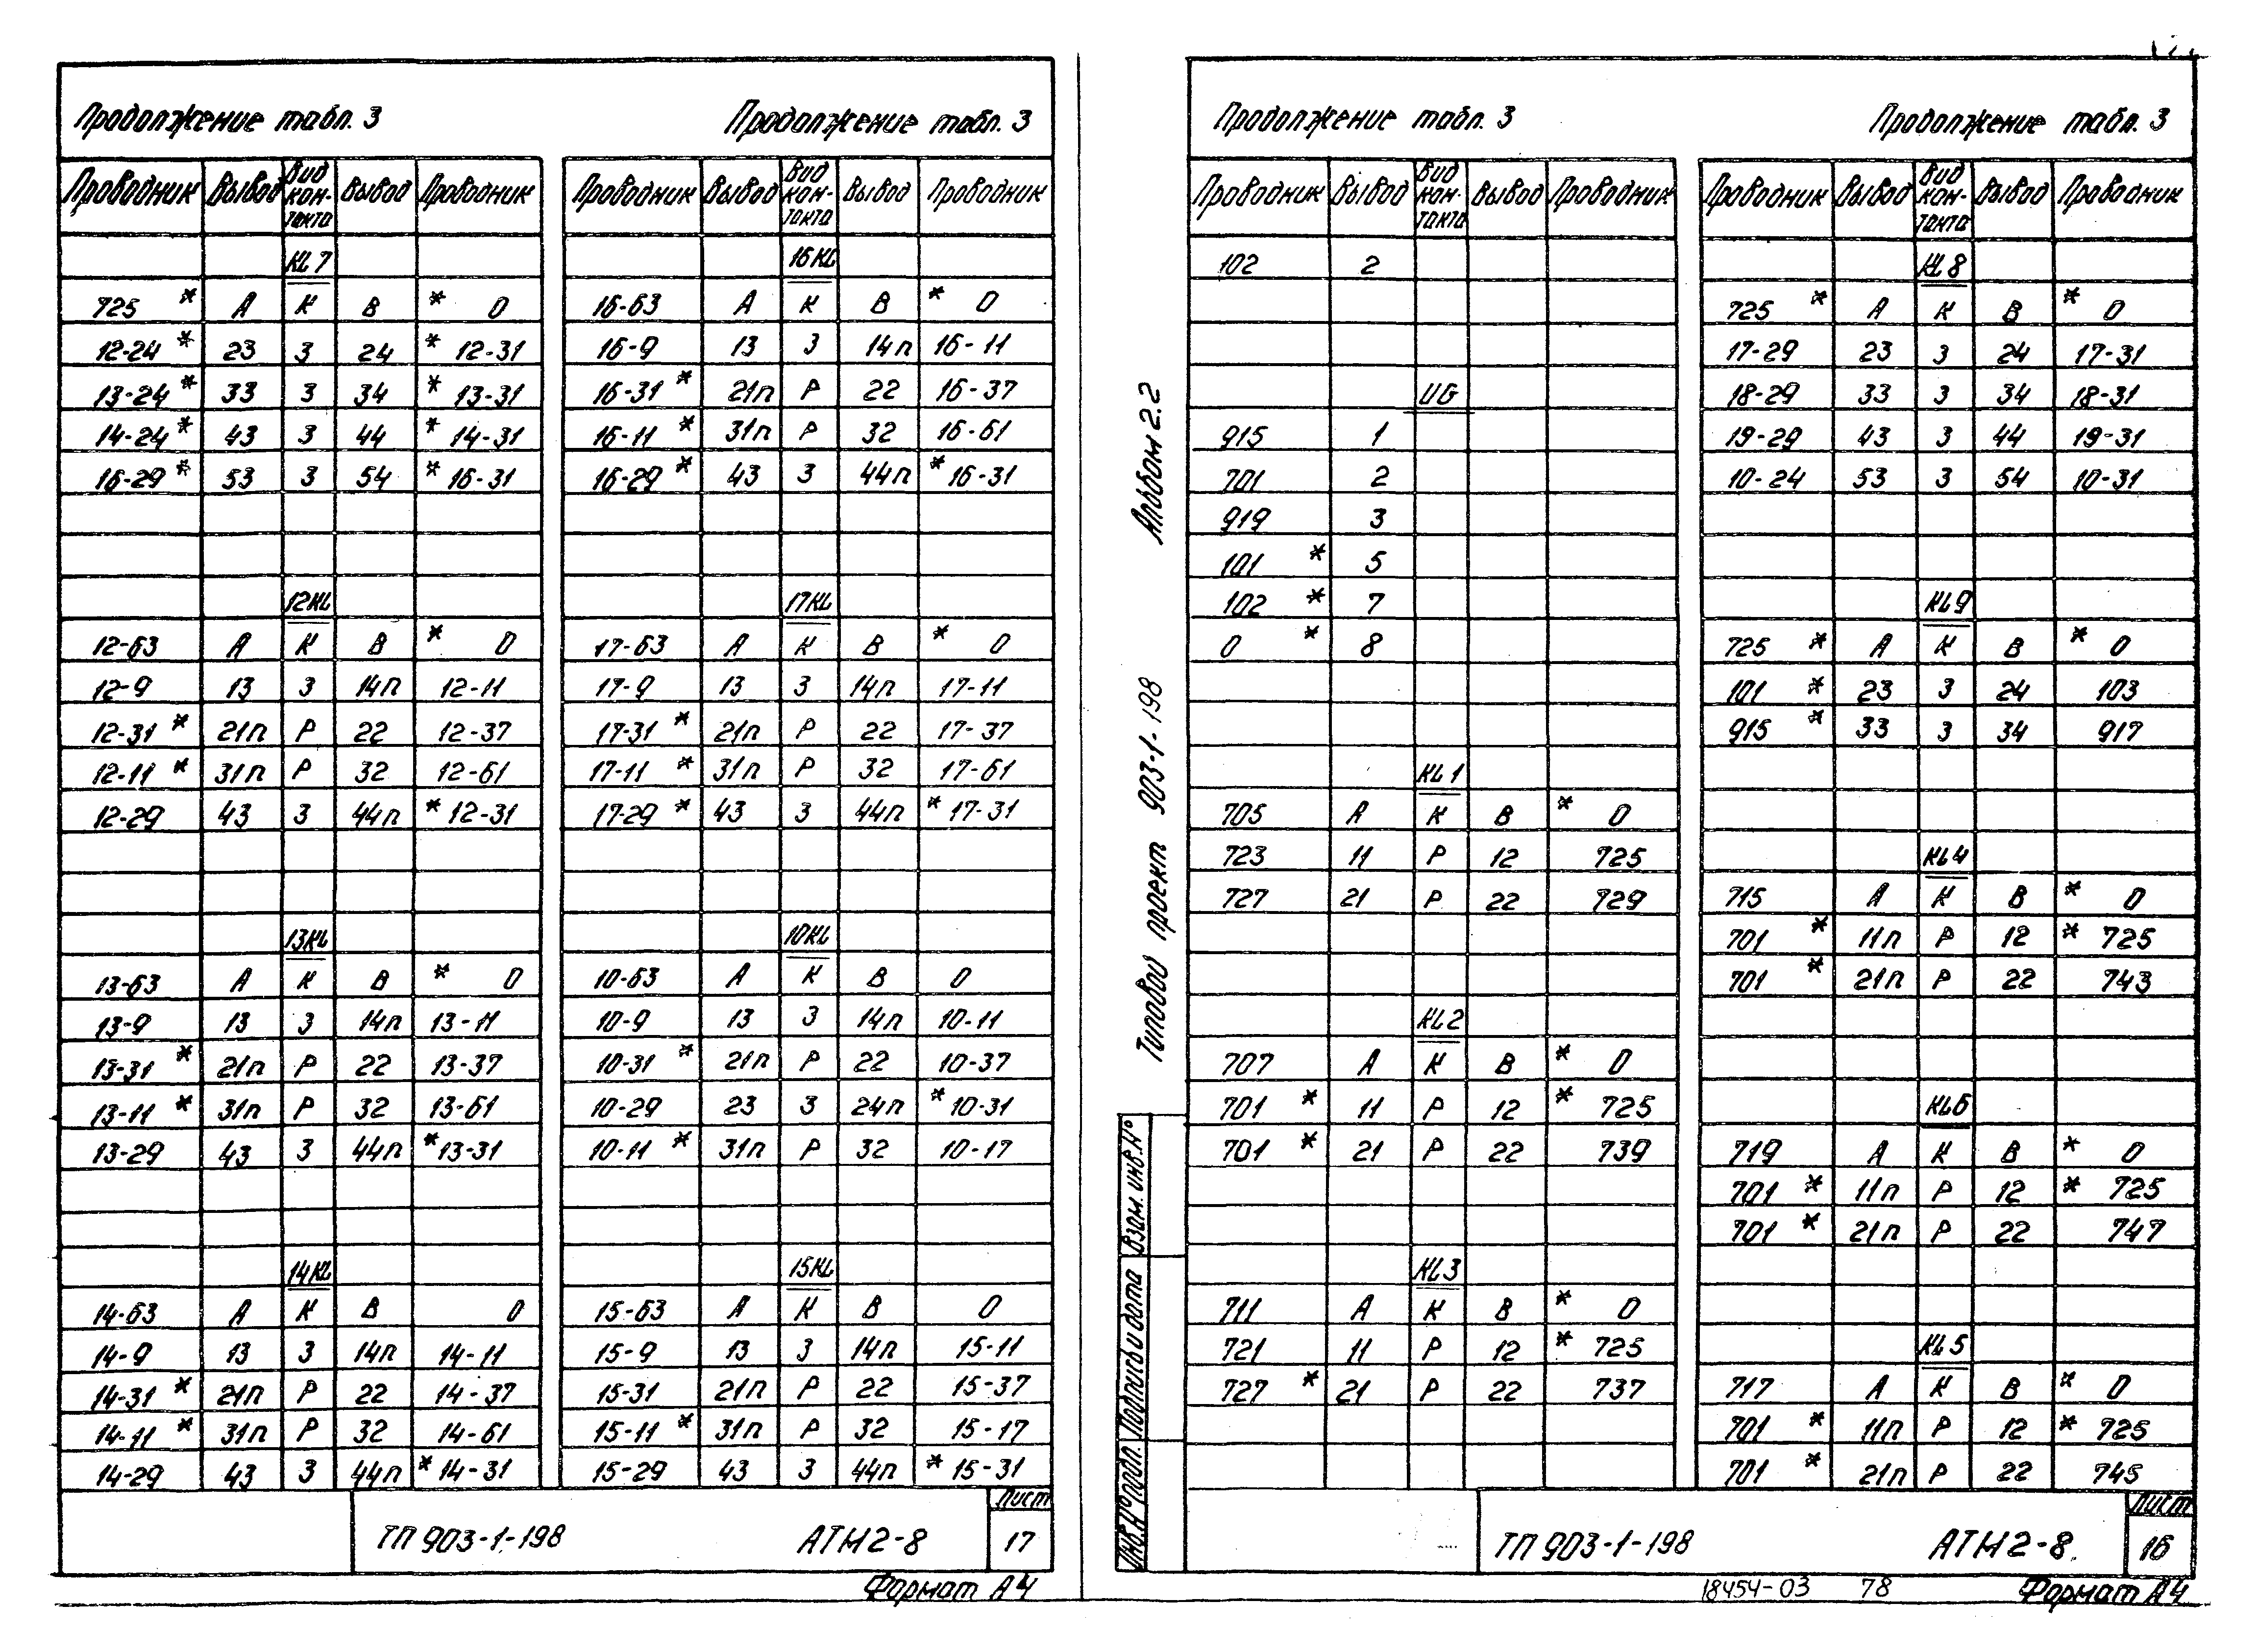 Продолжение табл. 3
Проводник Вывод Вид кон-такта Вывод Проводник
KL7
725 * А К В * 0
12-24 * 23 З 24 * 12-31
13-24 * 33 З 34 * 13-31
14-24 * 43 З 44 * 14-31
16-29 * 53 З 54 * 16-31
12KL
12-63 А К В * 0
12-9 13 З 14п 12-11
12-31 * 21п Р 22 12-37
12-11 * 31п Р 32 12-61
12-29 43 З 44п * 12-31
13KL
13-63 А К В * 0
13-9 13 З 14п 13-11
13-31 * 21п Р 22 13-37
13-11 * 31п Р 32 13-61
13-29 43 З 44п * 13-31
14KL
14-63 А К В 0
14-9 13 З 14п 14-11
14-31 * 21п Р 22 14-37
14-11 * 31п Р 32 14-61
14-29 43 З 44п * 14-31
Продолжение табл. 3
Проводник Вывод Вид кон-такта Вывод Проводник
16KL
16-63 А К В * 0
16-9 13 З 14п 16-11
16-31 * 21п Р 22 16-37
16-11 * 31п Р 32 16-61
16-29 * 43 З 44п * 16-31
17KL
17-63 А К В * 0
17-9 13 З 14п 17-11
17-31 * 21п Р 22 17-37
17-11 * 31п Р 32 17-61
17-29 * 43 З 44п * 17-31
10KL
10-63 А К В 0
10-9 13 З 14п 10-11
10-31 * 21п Р 22 10-37
10-29 23 З 24п * 10-31
10-11 * 31п Р 32 10-17
15KL
15-63 А К В 0
15-9 13 З 14п 15-11
15-31 21п Р 22 15-37
15-11 * 31п Р 32 15-17
15-29 43 З 44п * 15-31
ТП 903-1-198 АТМ2-8
Лист
17
Формат А4
Альбом 2.2
Типовой проект 903-1-198
Взам. инв. №
Подпись и дата
Инв. № подл.
Продолжение табл. 3
Проводник Вывод Вид кон-такта Вывод Проводник
102 2
UG
915 1
701 2
919 3
101 * 5
102 * 7
0 * 8
KL1
705 А К В * 0
723 11 Р 12 725
727 21 Р 22 729
KL2
707 А К В * 0
701 * 11 Р 12 * 725
701 * 21 Р 22 739
KL3
711 А К В * 0
721 11 Р 12 * 725
727 * 21 Р 22 737
Продолжение табл. 3
Проводник Вывод Вид кон-такта Вывод Проводник
KL8
725 * А К В * 0
17-29 23 З 24 17-31
18-29 33 З 34 18-31
19-29 43 З 44 19-31
10-24 53 З 54 10-31
KL9
725 * А К В * 0
101 * 23 З 24 103
915 * 33 З 34 917
KL4
715 А К В * 0
701 * 11п Р 12 * 725
701 * 21п Р 22 743
KL6
719 А К В * 0
701 * 11п Р 12 * 725
701 * 21п Р 22 747
KL5
717 А К В * 0
701 * 11п Р 12 * 725
701 * 21п Р 22 745
ТП 903-1-198 АТМ2-8
Лист
16
18454-03 78 Формат А4